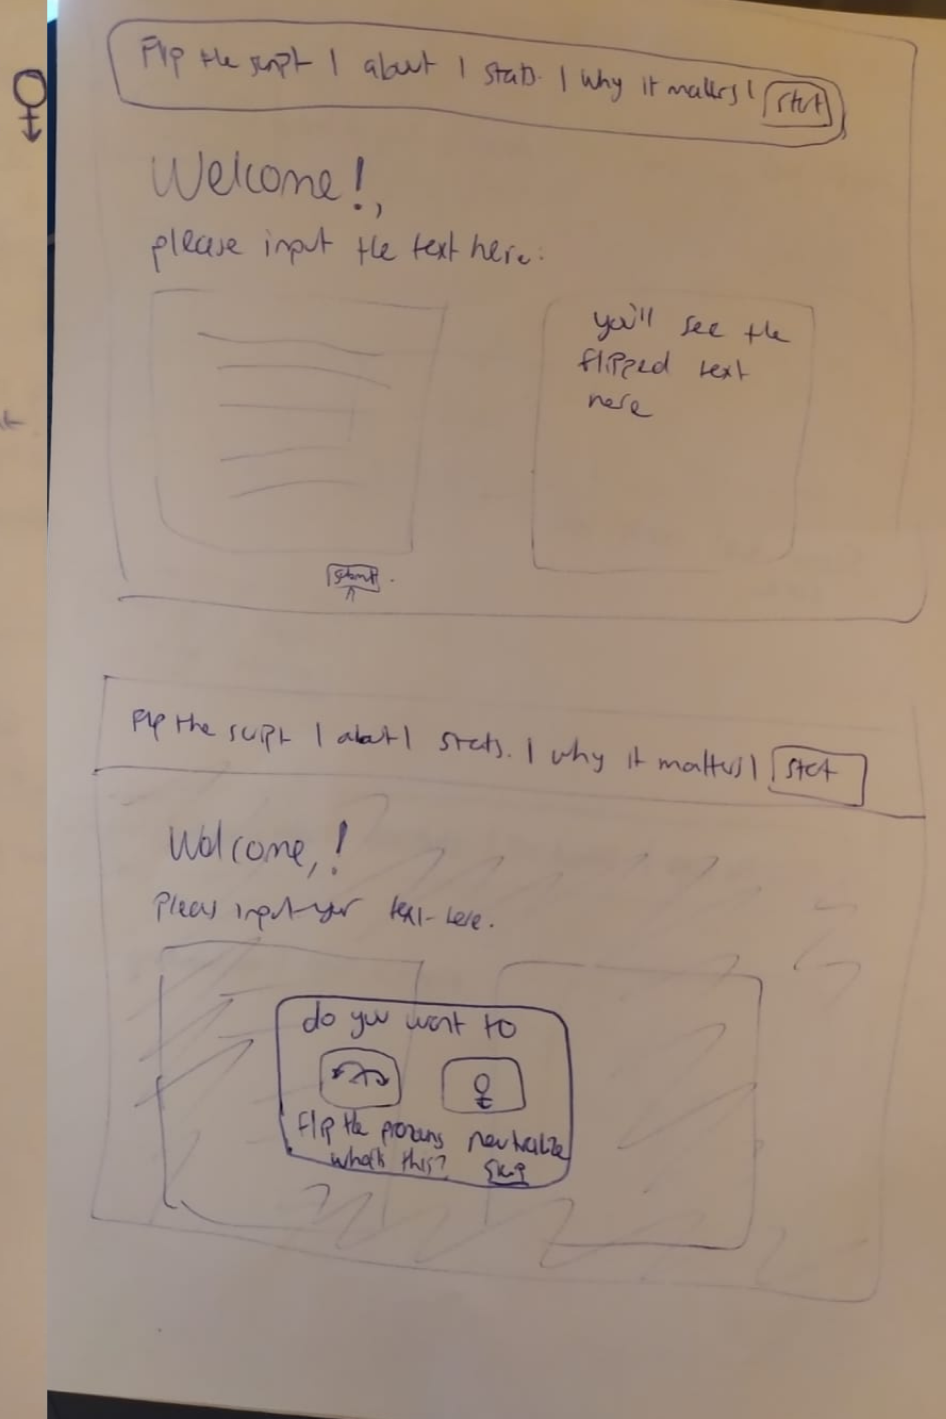 Flip the script | about | stats. | Why it matters | start
Welcome!,
please input the text here:
you'll see the
flipped text
here
submit
Flip the script | about | stats. | why it matters | start
Welcome,!
Please input your text here.
do you want to
flip the pronouns neutralize
what's this? skip